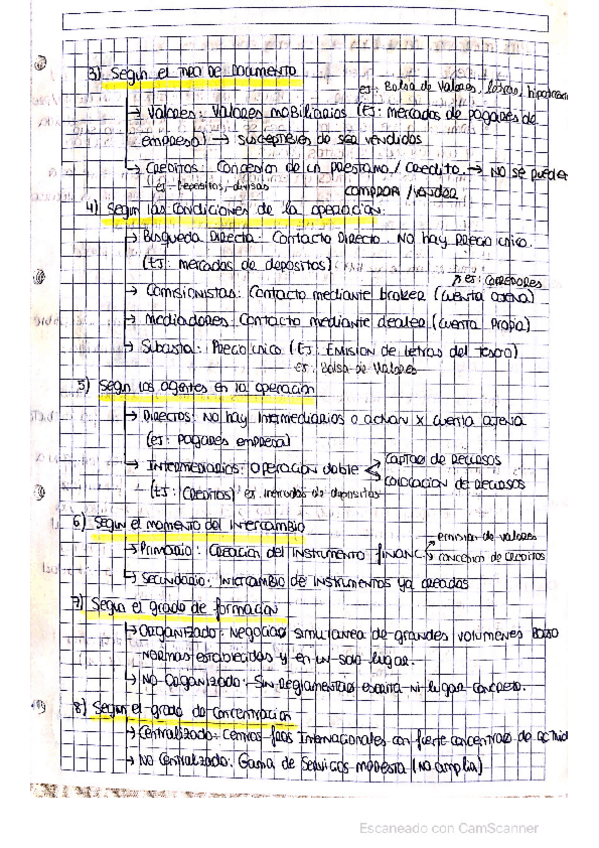 3) Segun el tipo de Documento
ej: Bolsa de Valores, letras, hipotecario
→ Valores: Valores mobiliarios (Ej: mercados de pagares de
empresa) → susceptibles de ser vendidos
→ Creditos: Concesion de un prestamo / credito. → No se pueden
(ej: Depositos, divisas comprar / vender
4) Segun las condiciones de la operacion.
→ Busqueda Directa: Contacto Directo. No hay precio unico.
(Ej: mercados de depositos)
→ ej: corredores
→ Comisionistas: Contacto mediante broker (cuenta ajena)
→ Mediadores: Contacto mediante dealer (cuenta propia)
→ Subasta: Precio unico (Ej: Emision de letras del tesoro)
ej: Bolsa de Valores
5) Segun los agentes en la operacion
→ Directos: No hay intermediarios o actuan x cuenta ajena
(ej: pagares empresa)
→ Intermediarios: operacion doble < Captac de recursos
colocacion de recursos
(Ej: Creditos) ej: mercados de depositos
6) Segun el momento del intercambio
→ emision de valores
→ Primario: Creacion del instrumento financ → concesion de creditos
→ Secundario: Intercambio de instrumentos ya creados
7) Segun el grado de formacion
→ Organizado: Negociac simultanea de grandes volumenes bajo
normas establecidas y en un solo lugar.
→ No organizado: Sin reglamentac escrita ni lugar concreto.
8) Segun el grado de concentracion
→ Centralizado: Centros fros internacionales con fuerte concentrac de activid
→ No Centralizado: Gama de servicios modesta (no amplia)
Escaneado con CamScanner